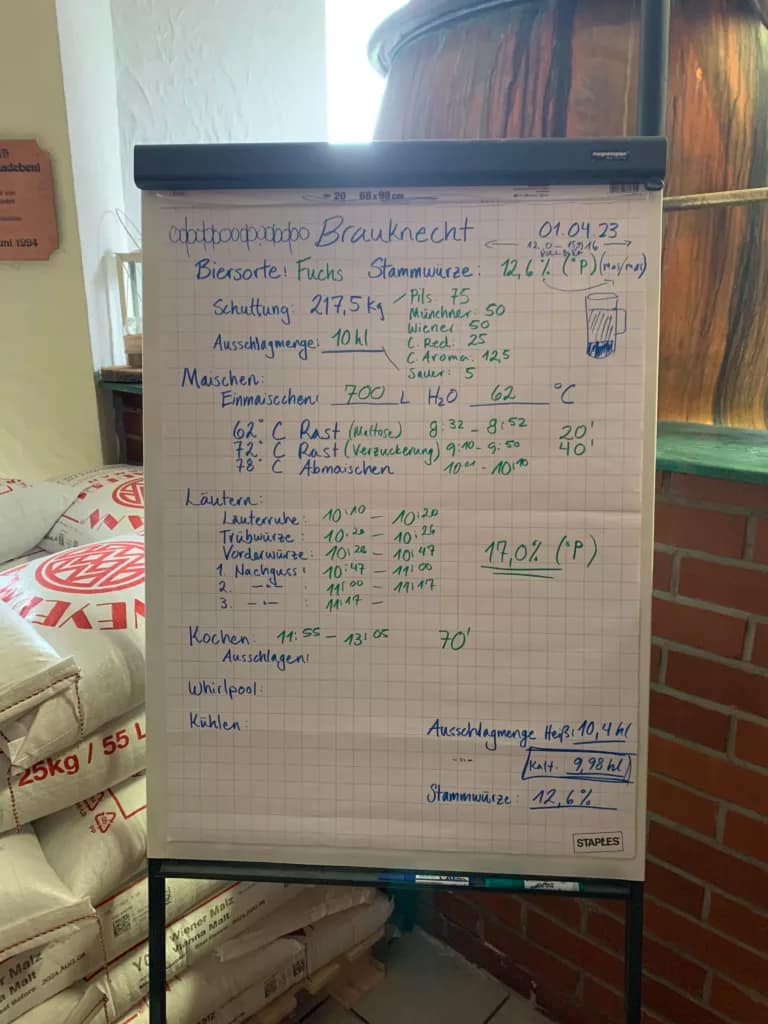 magnetoplan
20 68 x 98 cm
Brauknecht 01.04.23
Biersorte: Fuchs Stammwürze: 12,6% (°P) (mas/mas)
Schüttung: 217,5 kg
Pils 75
Münchner: 50
Wiener 50
C. Red: 25
C. Aroma: 12,5
Sauer: 5
Ausschlagmenge: 10 hl
Maischen:
Einmaischen: 700 L H₂O 62 °C
62° C Rast (Maltose) 8:32 - 8:52 20'
72° C Rast (Verzuckerung) 9:10 - 9:50 40'
78° C Abmaischen 10:01 - 10:10
Läutern:
Läuterruhe: 10:10 - 10:20
Trübwürze: 10:20 - 10:26
Vorderwürze: 10:28 - 10:47
17,0% (°P)
1. Nachguss: 10:47 - 11:00
2. -"- : 11:00 - 11:17
3. -"- : 11:17 -
Kochen: 11:55 - 13:05 70'
Ausschlagen:
Whirlpool:
Kühlen:
Ausschlagmenge Heiß: 10,4 hl
-"- Kalt: 9,98 hl
Stammwürze: 12,6%
STAPLES
uni 1994
25kg / 55 L
Wiener Malz
Vienna Malt
Wiener Malz